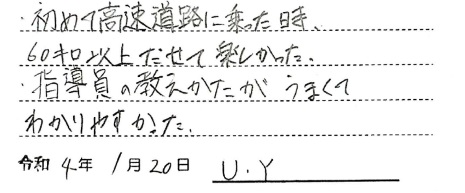 ・初めて高速道路に乗った時、
60キロ以上だせて楽しかった。
・指導員の教えかたがうまくて
わかりやすかった。
令和4年1月20日 U.Y